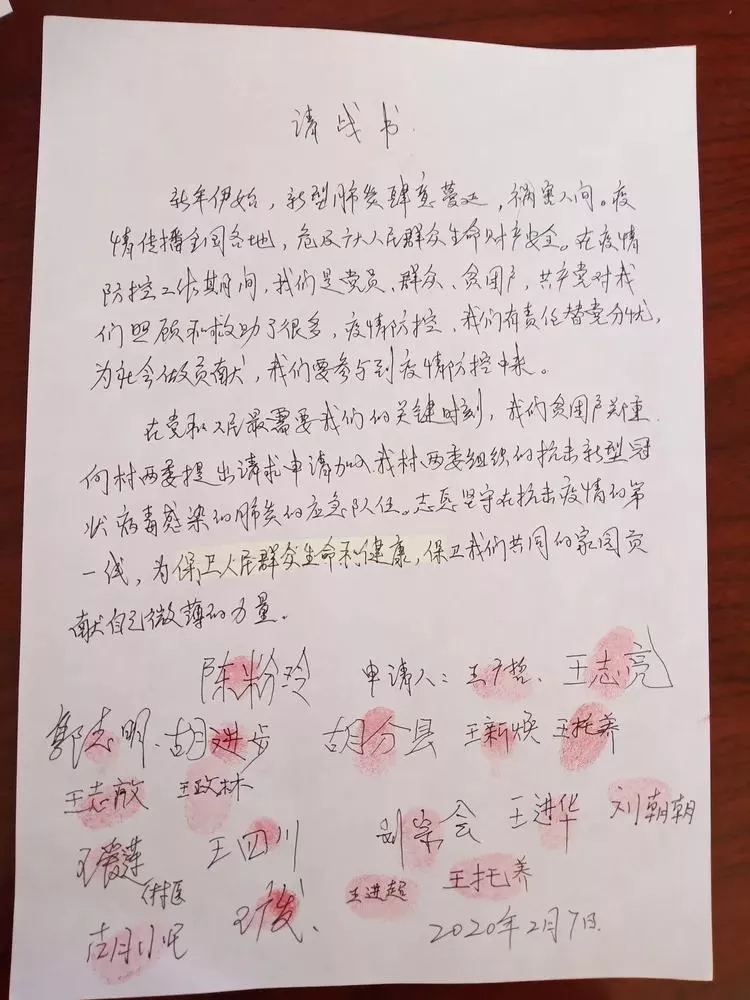 请战书
新年伊始，新型肺炎肆意蔓延，祸害人间。疫
情传播全国各地，危及广大人民群众生命财产安全。在疫情
防控工作期间，我们是党员、群众、贫困户，共产党对我
们照顾和救助了很多，疫情防控，我们有责任替党分忧，
为社会做贡献，我们要参与到疫情防控中来。
在党和人民最需要我们的关键时刻，我们贫困户郑重
向村两委提出请求申请加入我村两委组织的抗击新型冠
状病毒感染的肺炎的应急队伍。志愿坚守在抗击疫情的第
一线，为保卫人民群众生命和健康，保卫我们共同的家园贡
献自己微薄的力量。
陈粉玲 申请人：王广哲、王志亮
郭志明、胡进步 胡分县 王新焕 王托养
王志敏 王政林
王爱萍 王四川 刘宗会 王进华 刘朝朝
村医
王进超 王托养
2020年2月7日